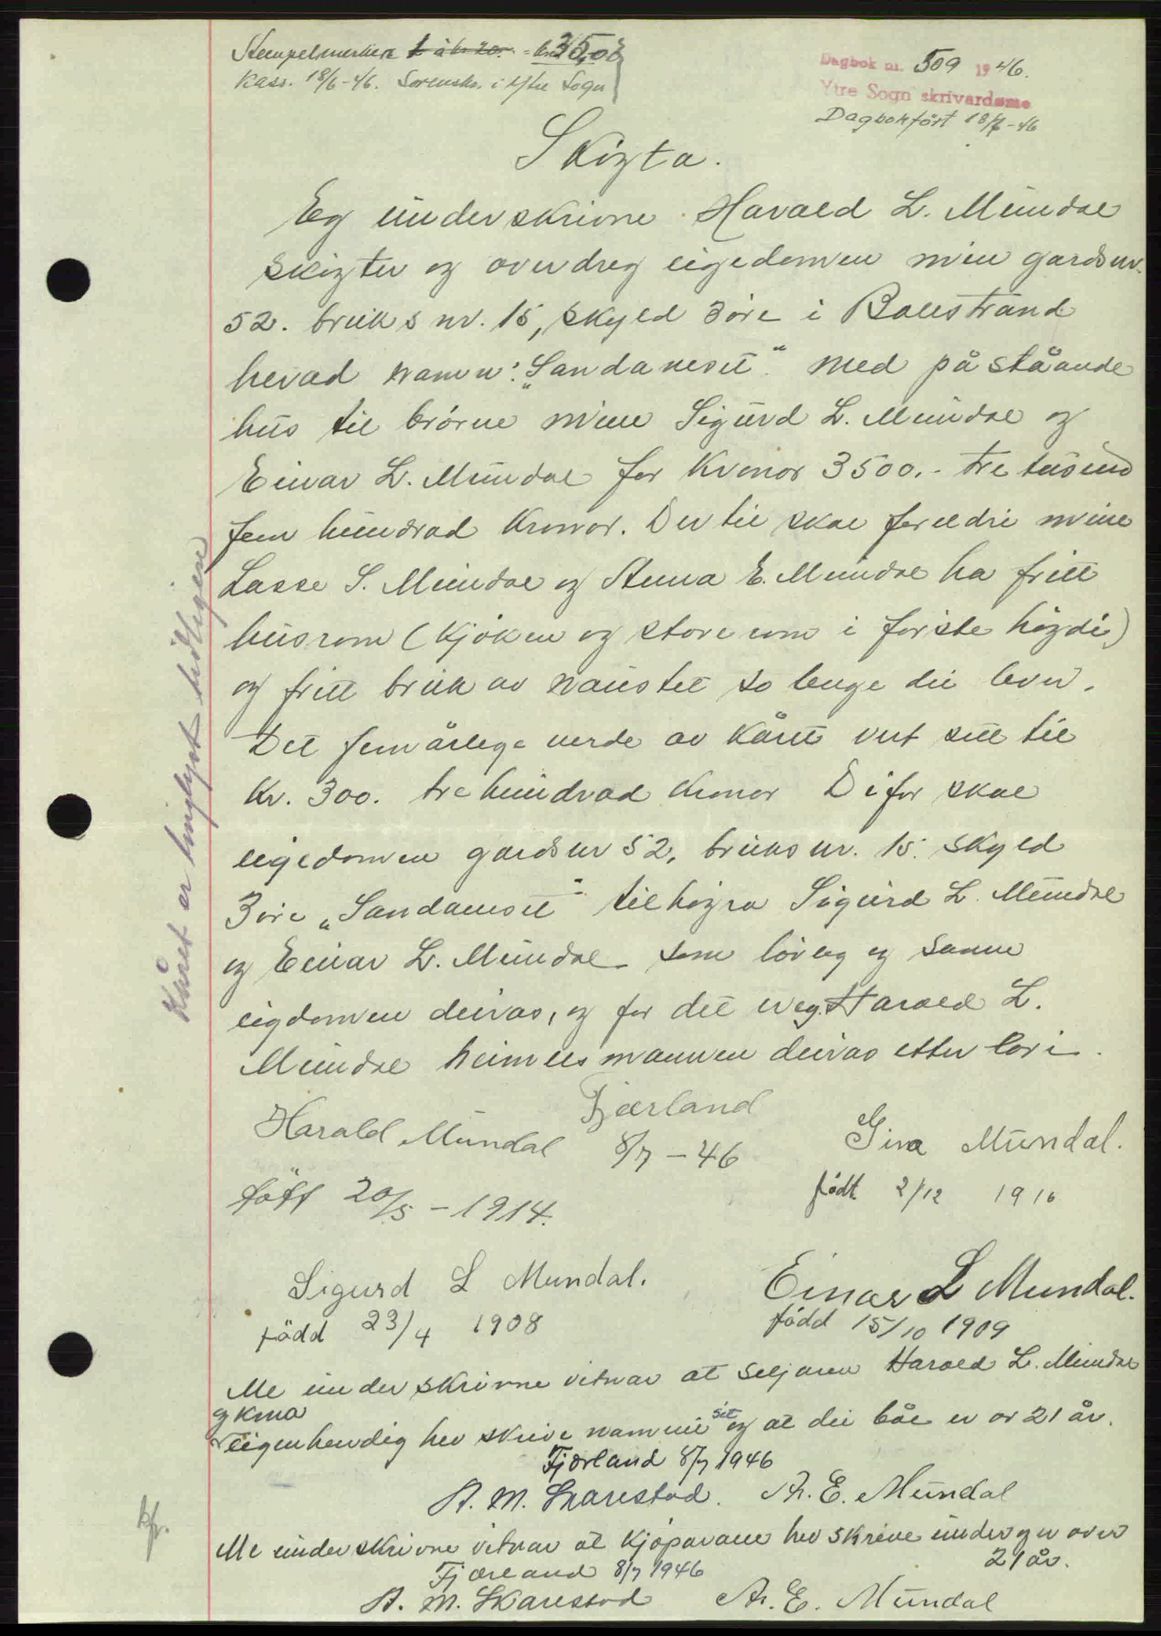 Stempelmerker 1 à kr 20.- = kr 35,00
Kass. 18/6-46. Sorenskr. i Ytre Sogn
Dagbok nr. 509 1946.
Ytre Sogn skrivardøme
Dagbokført 18/7-46
Skøyta.
Eg underskrivne Harald L. Mundal
skøyter og overdreg eigedomen min gardsnr.
52. bruksnr. 15, skyld 3 øre i Balestrand
herad namn: "Sandaneset" med påståande
hus til brørne mine Sigurd L. Mundal og
Einar L. Mundal for kronor 3500.- tre tusend
fem hundrad kronor. Der til skal foreldri mine
Lasse S. Mundal og Anna E. Mundal ha fritt
husrom (kjøken og store rom i første høgdi)
og fritt bruk av naustet so lenge dei lever.
Det femårlege verde av kåret vert sett til
Kr. 300. tre hundrad kronor Difor skal
eigedomen gardsnr 52, bruksnr. 15. skyld
3 øre "Sandaneset" tilhøyra Sigurd L. Mundal
og Einar L. Mundal som lovleg og sanne
eigdomen deiras, og for det er eg Harald L.
Mundal heimelsmannen deiras etter lovi.
Fjærland
8/7-46
Harald Mundal
født 20/5-1914.
Gina Mundal.
født 2/12 1916
Sigurd L Mundal.
född 23/4 1908
Einar L Mundal.
född 15/10 1909
Me underskrivne vitnar at seljaren Harald L. Mundal
og kona
eigenhendig hev skrive namni sit og at dei båe er or 21 år.
Fjærland 8/7 1946
A. M. Skarestad. Ar. E. Mundal
Me underskrivne vitnar at kjøparane hev skreve under og er over
21 år.
Fjærland 8/7 1946
A. M. Skarestad Ar. E. Mundal
Kåret er tinglyst tidlegere